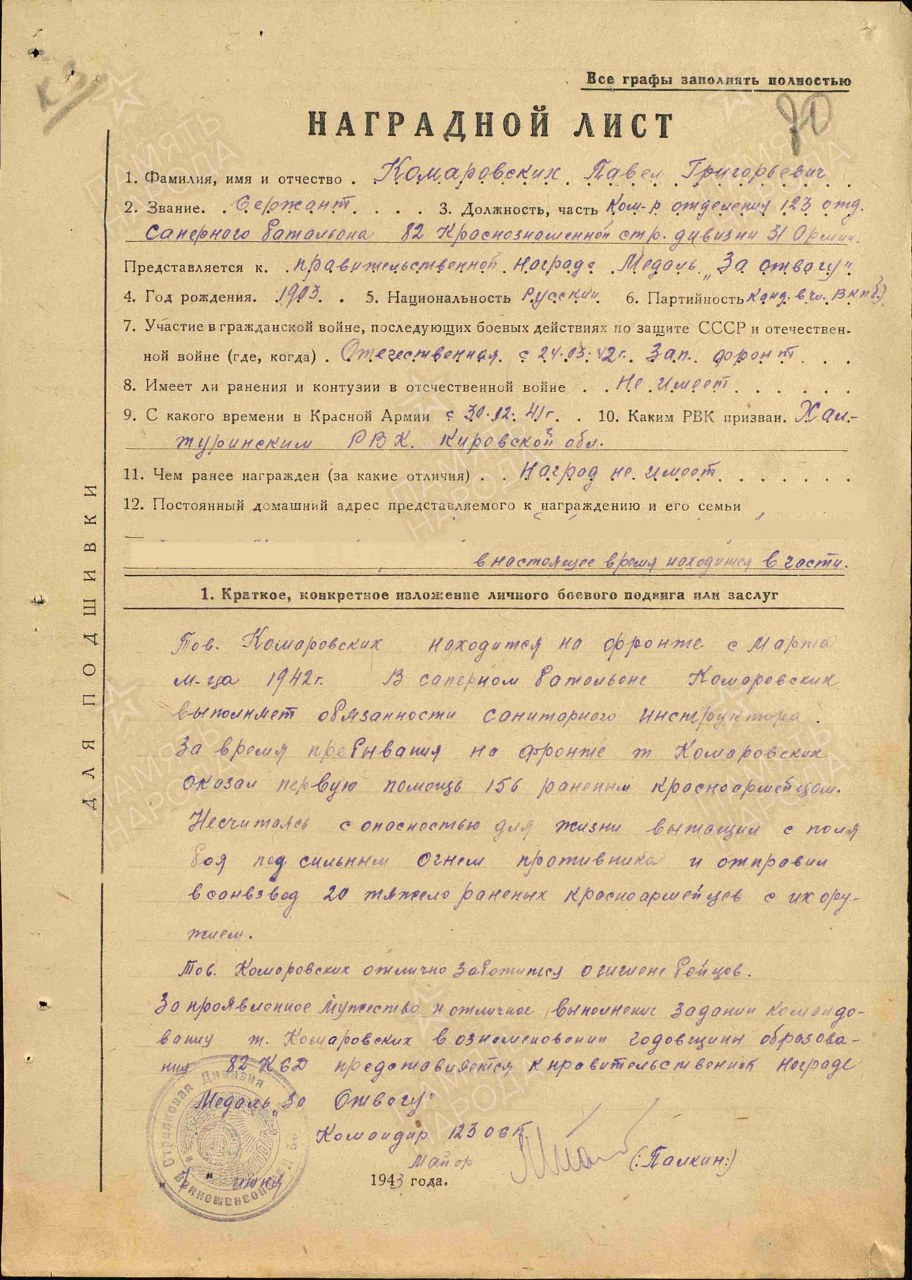 Все графы заполнять полностью
70
НАГРАДНОЙ ЛИСТ
1. Фамилия, имя и отчество . Комаровских Павел Григорьевич
2. Звание. . Сержант . . . . 3. Должность, часть Ком-р отделения 123 отд.
саперного батальона 82 Краснознаменной стр. дивизии 31 Армии.
Представляется к. правительственной награде Медаль „За отвагу"
4. Год рождения. 1903. . 5. Национальность Русский 6. Партийность Канд. в чл. ВКП(б)
7. Участие в гражданской войне, последующих боевых действиях по защите СССР и отечествен-
ной войне (где, когда) . Отечественная с 24.03.42г. Зап. фронт . . .
8. Имеет ли ранения и контузии в отечественной войне . . Не имеет . . . . . .
9. С какого времени в Красной Армии с 30.12.41г. . 10. Каким РВК призван. Хал-
туринским РВК. Кировской обл.
11. Чем ранее награжден (за какие отличия) . . Наград не имеет . . . . . . .
12. Постоянный домашний адрес представляемого к награждению и его семьи
в настоящее время находится в части.
1. Краткое, конкретное изложение личного боевого подвига или заслуг
Тов. Комаровских находится на фронте с Марта
м-ца 1942г. В саперном батальоне Комаровских
выполняет обязанности санитарного инструктора.
За время пребывания на фронте т Комаровских
оказал первую помощь 156 раненым красноармейцам.
Несчитаясь с опасностью для жизни вытащил с поля
боя под сильным огнем противника и отправил
в санвзвод 20 тяжело раненых красноармейцев с их ору-
жием.
Тов. Комаровских отлично заботится о гигиене бойцов.
За проявленное мужество и отличное выполнение заданий командо-
вания т. Комаровских в ознаменовании годовщины образова-
ния 82 КСД представляется к правительственной награде
Медаль „За Отвагу"
Командир 123 осб
Майор (:Палкин:)
7 " июня 1943 года.
Стрелковая Дивизия
Краснознаменная
ДЛЯ ПОДШИВКИ
ПАМЯТЬ НАРОДА